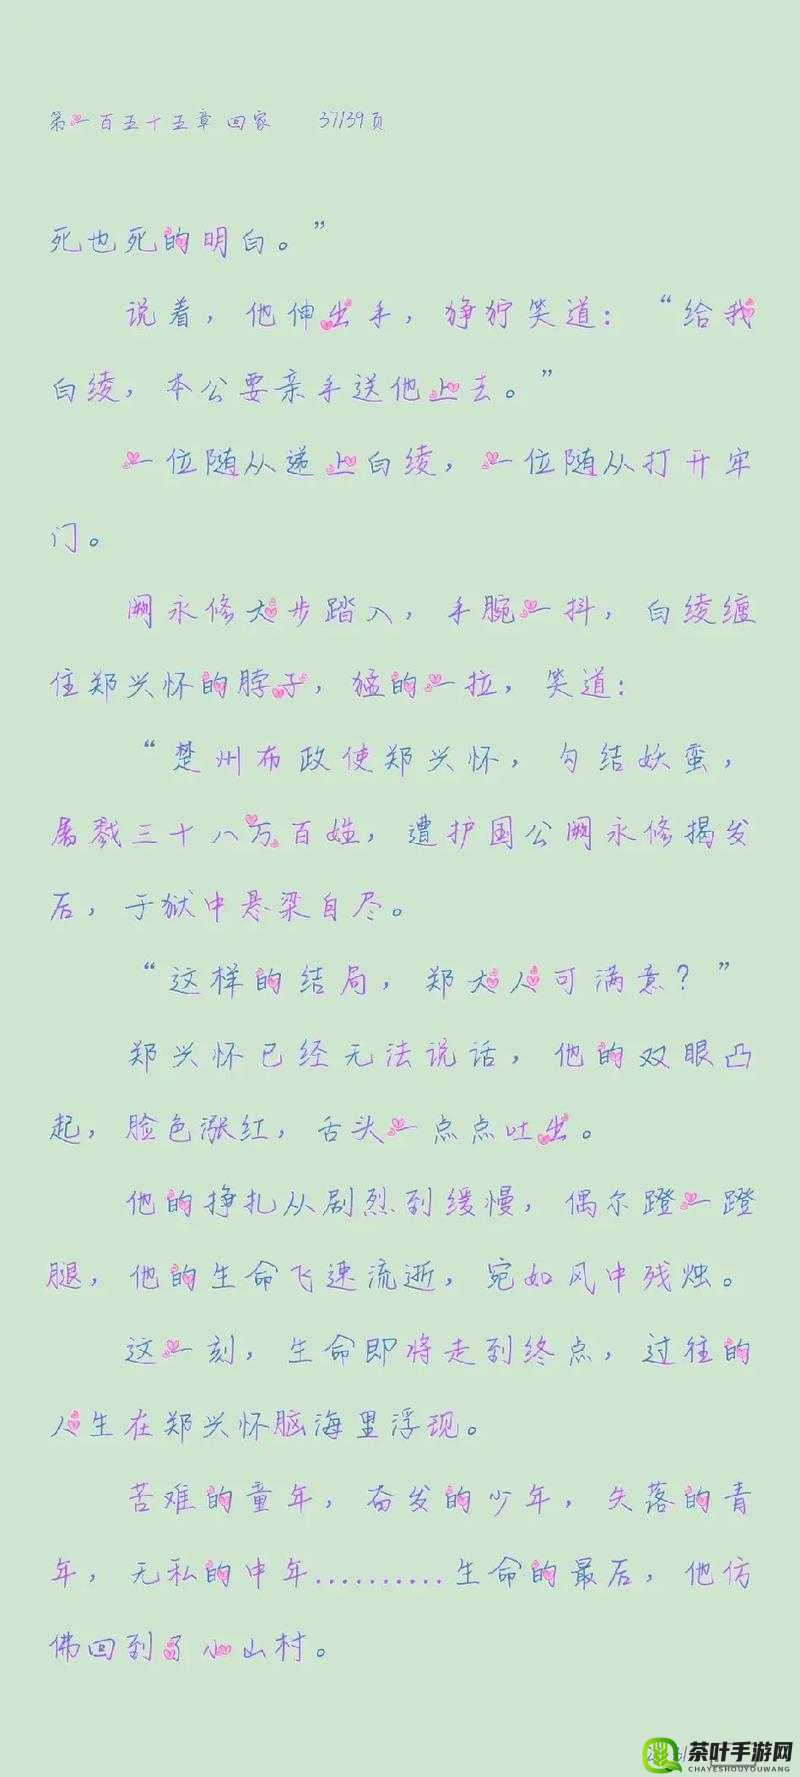 第一百五十五章 回家 37/39页
死也死的明白。”
说着，他伸出手，狰狞笑道：“给我
白绫，本公要亲手送他上去。”
一位随从递上白绫，一位随从打开牢
门。
阙永修大步踏入，手腕一抖，白绫缠
住郑兴怀的脖子，猛的一拉，笑道：
“楚州布政使郑兴怀，勾结妖蛮，
屠戮三十八万百姓，遭护国公阙永修揭发
后，于狱中悬梁自尽。
“这样的结局，郑大人可满意？”
郑兴怀已经无法说话，他的双眼凸
起，脸色涨红，舌头一点点吐出。
他的挣扎从剧烈到缓慢，偶尔蹬一蹬
腿，他的生命飞速流逝，宛如风中残烛。
这一刻，生命即将走到终点，过往的
人生在郑兴怀脑海里浮现。
苦难的童年，奋发的少年，失落的青
年，无私的中年..........生命的最后，他仿
佛回到了小山村。
茶叶手游网
CHAYESHOUYOUWANG